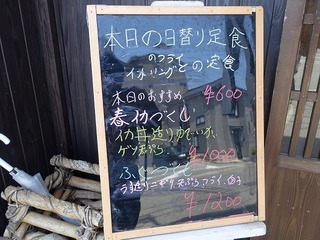 本日の日替り定食
のフライ
イカリングとの定食
本日のおすすめ ¥600
春イカづくし
イカ丼造りゆでいか、
ゲソ天ぷら ¥1000
ふぐづくし
天ぷらフライ
¥1200